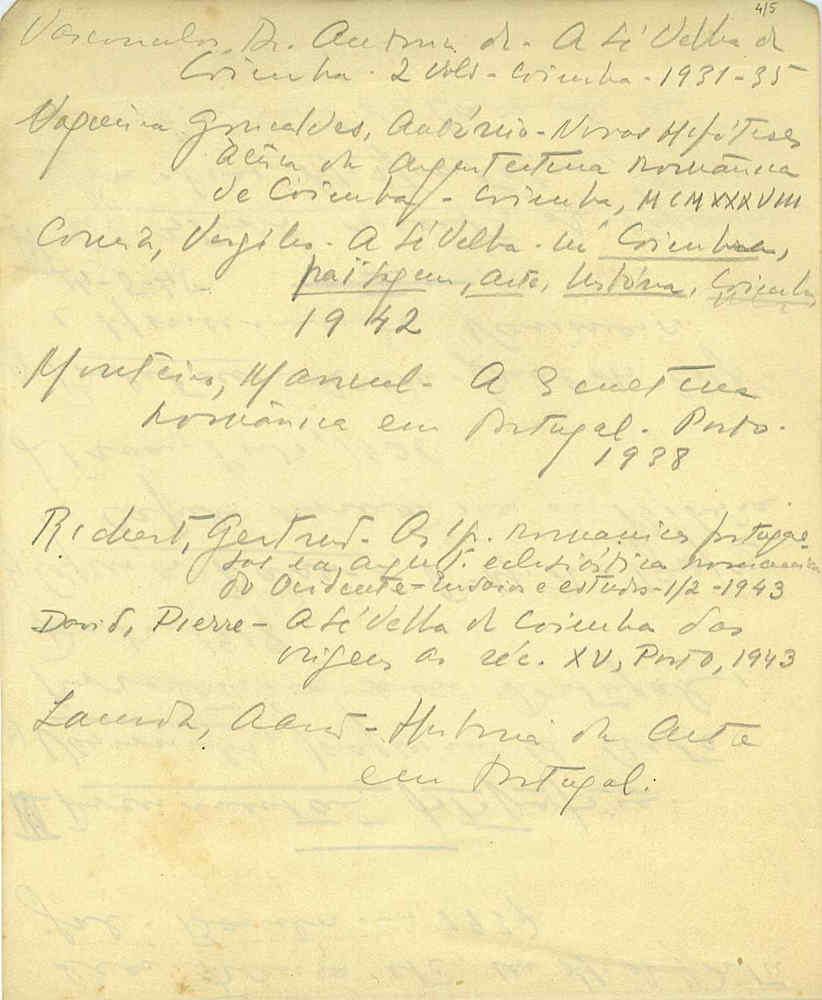 4/5
Vasconcelos, Dr. António de - A Sé Velha de
Coimbra - 2 vols - Coimbra - 1931-35
Nogueira Gonçalves, António - Novas Hipóteses
àcêrca da Arquitectura românica
de Coimbra - Coimbra, MCMXXXVIII
Correia, Vergílio - A Sé Velha - in Coimbra,
paisagem, arte, história, Coimbra,
1942
Monteiro, Manuel - A Escultura
românica em Portugal - Porto -
1938
Richert, Gertrud - As ig. romanicas portugue-
sas e a arquit. eclesiástica romanica
do Ocidente - Ensaios e estudos - 1/2 - 1943
David, Pierre - A Sé Velha de Coimbra das
origens ao séc. XV, Porto, 1943
Lacerda, Aarão - História da Arte
em Portugal.